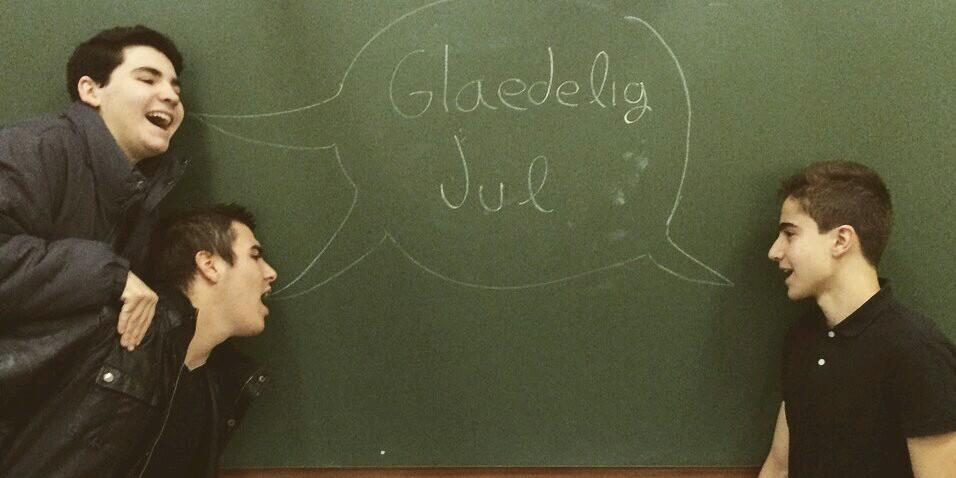 Glaedelig
Jul